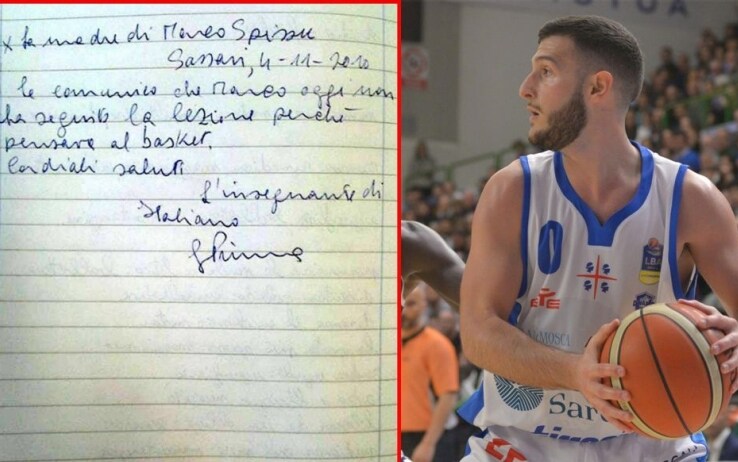 x la madre di Marco Spissu
Sassari, 4-11-2010
le comunico che Marco oggi non
ha seguito la lezione perché
pensava al basket.
Cordiali saluti
l'insegnante di
italiano
0
LBA
ETE
Sar